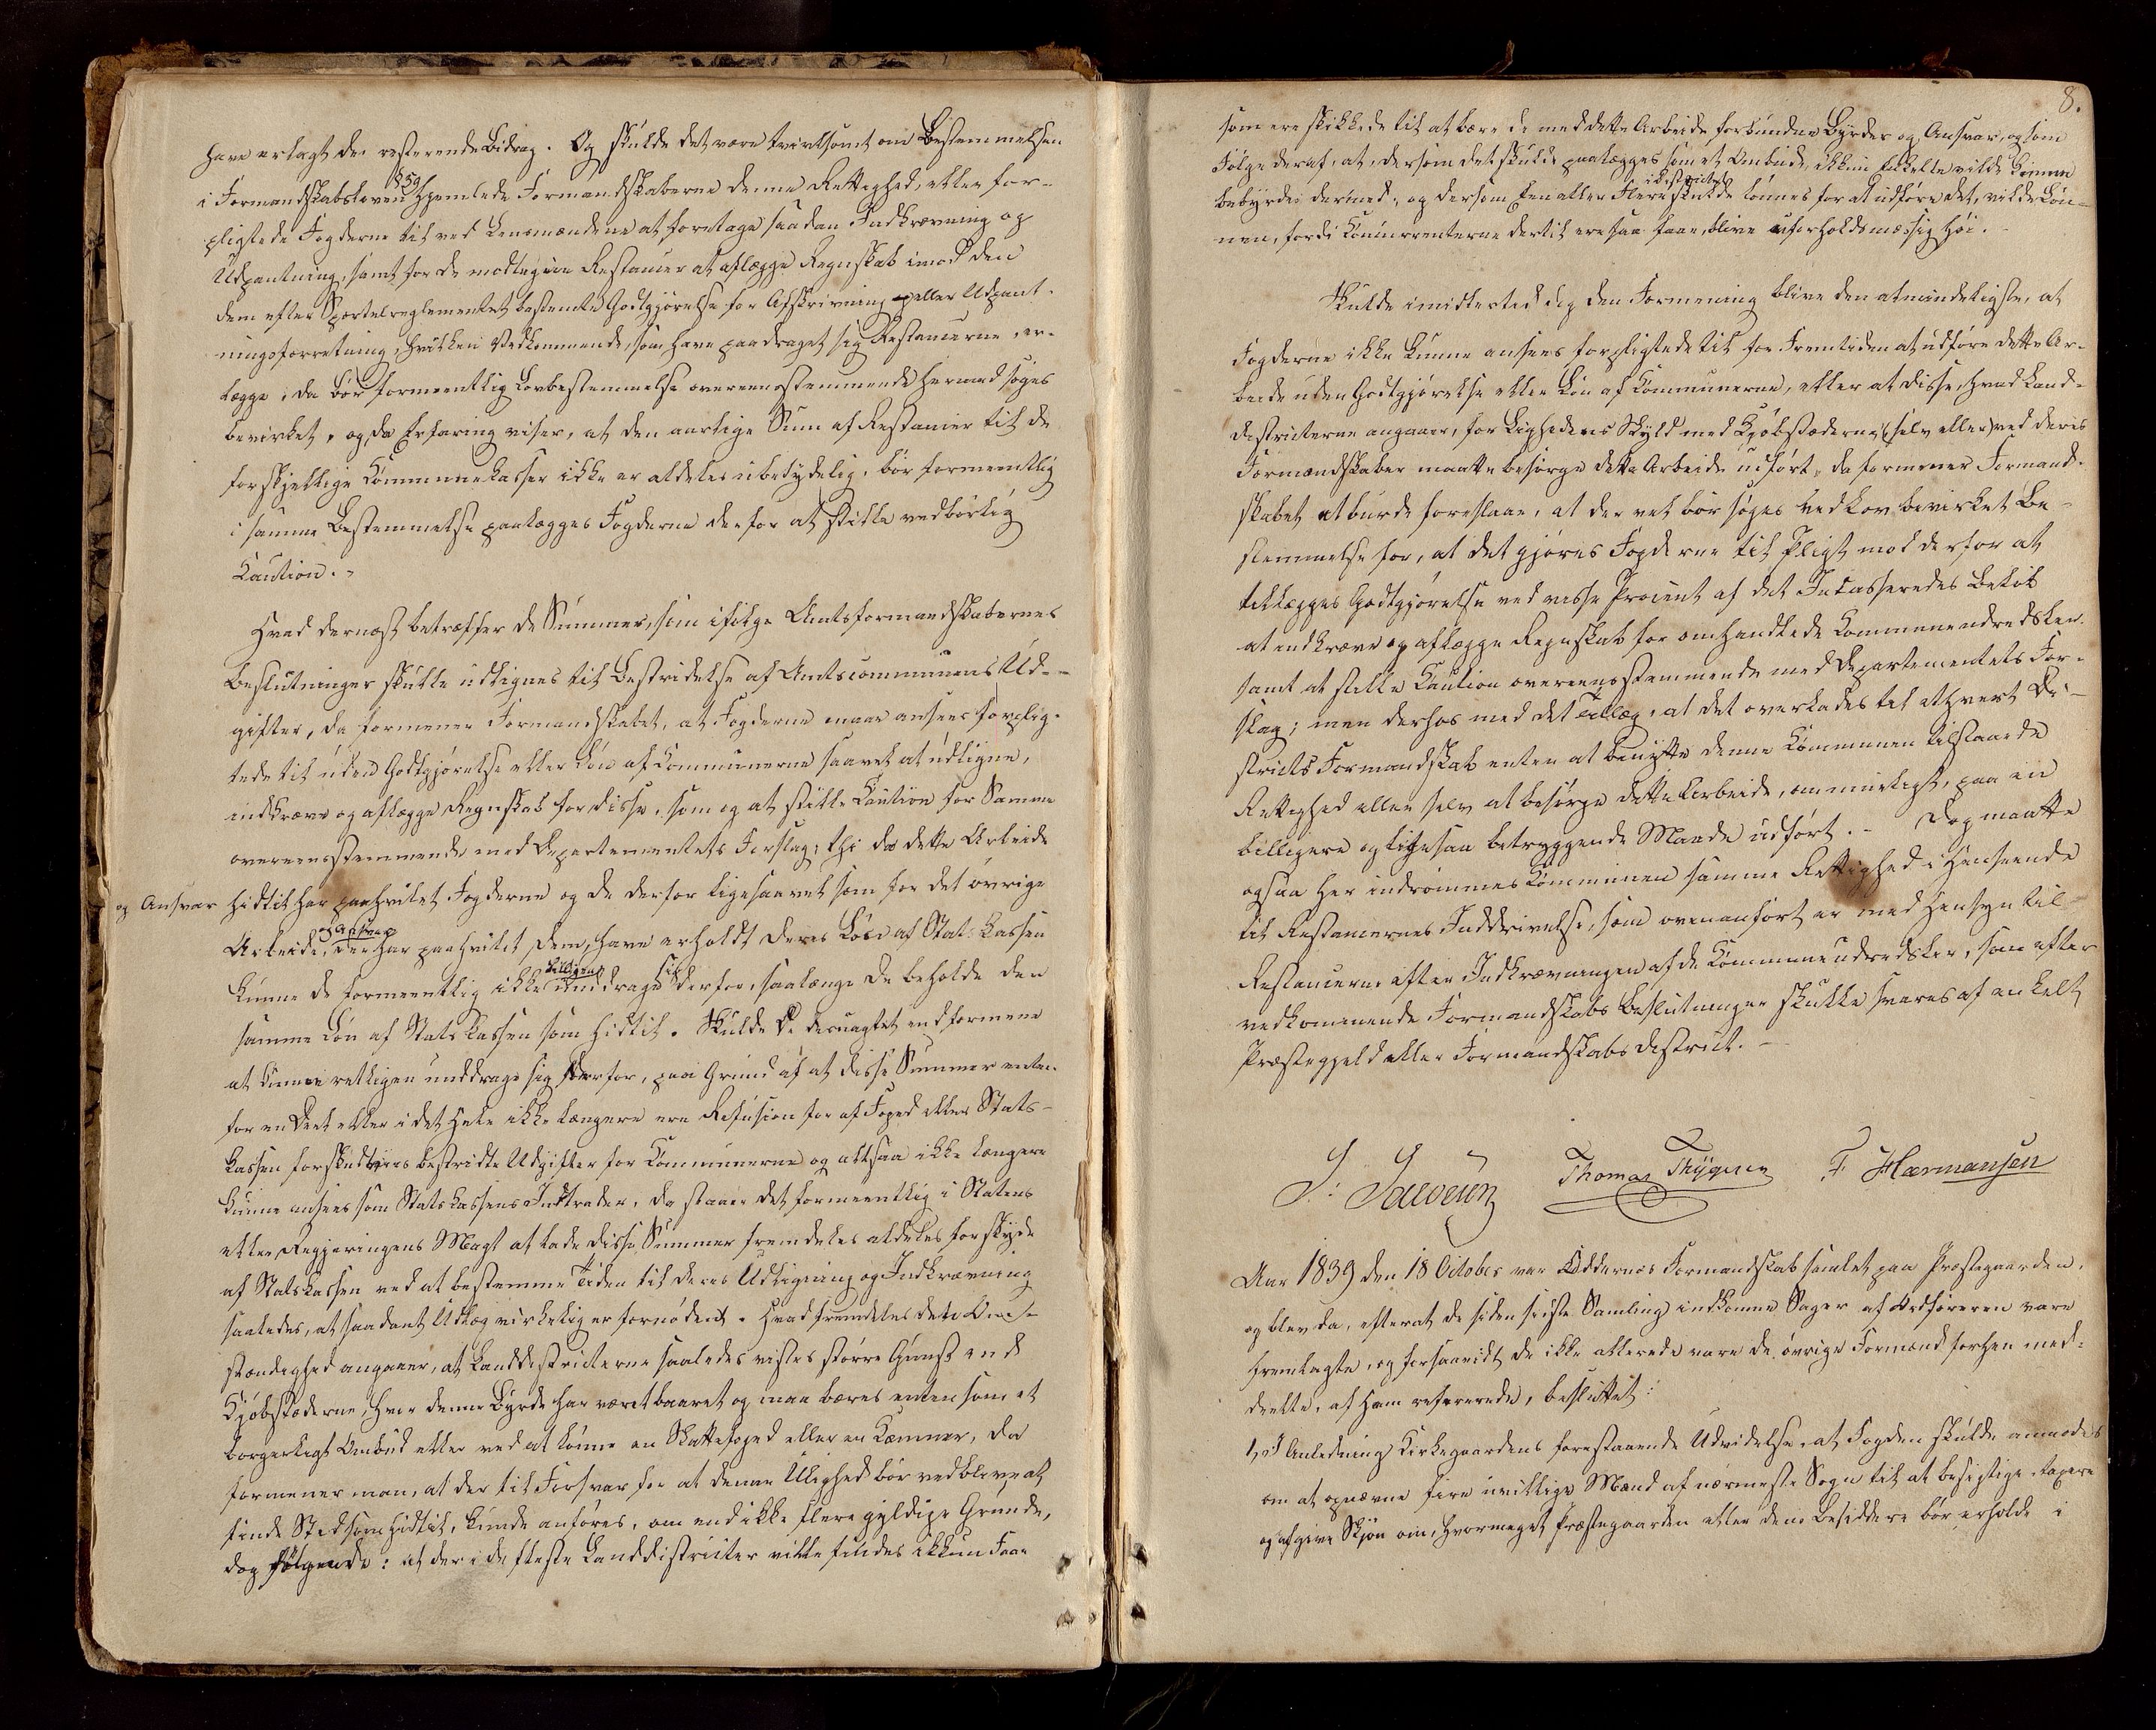 have erlagt de resterende Bidrag. Og skulde det være tvivlsomt om Bestemmelsen
§ 59
i Formandskabsloven hjemlede Formandskaberne denne Rettighed, eller for-
pligtede Fogderne til ved Lensmændene at foretage saadan Indkrævning og
Udpantning, samt for de modtagne Restancer at aflægge Regnskab imod den
dem efter Sportelreglementet bestemte Godtgjørelse for Afskrivning eller Udpant-
ningsforretning, hvilken Vedkommende, som have paadraget sig Restancerne, er-
lægge, da bør formeentlig Lovbestemmelse overeensstemmende hermed søges
bevirket, og da Erfaring viser, at den aarlige Sum af Restancer til de
forskjellige Kommunekasser ikke er aldeles ubetydelig, bör formeentlig
i samme Bestemmelse paalægges Fogderne derfor at stille vedbörlig
Caution. -
Hvad dernæst betræffer de Summer, som ifølge Amtsformandskabernes
Beslutninger skulle udlignes til Bestridelse af Amtscommunens Ud-
gifter, da formener Formandskabet, at Fogderne maae ansees forplig-
tede til uden Godtgjörelse eller Lön af Communerne saavel at udligne,
indkræve og aflægge Regnskab for disse, som og at stille Caution for Samme
overeensstemmende med Departementets Forslag; thi da dette Arbeide
og Ansvar hidtil har paahvilet Fogderne og de derfor ligesaavel som for det övrige
og Ansvar
Arbeide, der har paahvilet dem, have erholdt deres Lön af Statskassen
billigen sig
kunne de formeentlig ikke unddrage derfor, saalænge de beholde den
samme Lön af Statskassen som hidtil. Skulde de desuagtet end formene
at kunne retligen unddrage sig derfor, paa Grund af at disse Summer enten
for en Deel eller i det Hele ikke længere ere Refusion for af Foged eller Stats-
kassen forskudsviis bestridte Udgifter for Communerne og altsaa ikke længere
kunne ansees som Statskassens Indtrader, da staaer det formeentlig i Statens
eller Regjeringens Magt at lade disse Summer fremdeles aldeles forskyde
af Statskassen ved at bestemme Tiden til deres Udligning og Indkrævning
saaledes, at saadant Udlæg virkelig er fornödent. Hvad fremdeles den Om-
stændighed angaaer, at Landdistricterne saaledes vistes större Gunst end
Kjöbstæderne, hvor denne Byrde har været baaret og maa bæres enten som et
borgerligt Ombud eller ved at lönne en Skattefoged eller en Kæmner, da
formener man, at der til Forsvar for at denne Ulighed bör vedblive at
finde Sted som hidtil, kunde anföres, om end ikke flere gyldige Grunde,
dog fölgende: at der i de fleste Landdistricter ville findes ikkun Faae
8.
som ere skikkede til at bære de med dette Arbeide forbundne Byrder og Ansvar, og som
Fölge deraf, at, dersom det skulde paalægges som et Ombud, ikkun Enkelte vilde kunne
i Districtet
bebyrdes dermed, og dersom Een eller Flere skulde lönnes for at udföre det, vilde Lön-
nen, fordi Concurrenterne dertil ere saa faae, blive uforholdsmæssig höi. -
Skulde imidlertid dog den Formening blive den almindeligste, at
Fogderne ikke kunne ansees forpligtede til for Fremtiden at udföre dette Ar-
beide uden Godtgjörelse eller Lön af Communerne, eller at disse, hvad Land-
districterne angaaer, for Lighedens Skyld med Kjöbstæderne, (selv eller) ved deres
Formandskaber maatte besörge dette Arbeide udfört, da formener Formand-
skabet at burde foreslaae, at der vel bör söges ved Lov bevirket Be-
stemmelse for, at det gjöres Fogderne til Pligt mod derfor at
tillægges Godtgjörelse ved visse Procent af det Incasseredes Belöb
at indkræve og aflægge Regnskab for omhandlede Communeudredsler
samt at stille Caution overeensstemmende med Departementets For-
slag; men derhos med det Tillæg, at det overlades til ethvert Di-
stricts Formandskab enten at benytte denne Communen tilstaaede
Rettighed eller selv at besörge dette Arbeide, om mueligt, paa en
billigere og ligesaa betryggende Maade udfört. - Dog maatte
ogsaa her indrömmes Communen samme Rettighed i Henseende
til Restancernes Inddrivelse, som ovenanfört er med Hensyn til
Restancerne efter Indkrævningen af de Communeudredsler, som efter
vedkommende Formandskabs Beslutninger skulle svares af enkelt
Præstegjeld eller Formandskabsdistrict. -
Thomas Thygesen F. Hærmansen
Aar 1839 den 18 October var Oddernes Formandskab samlet paa Præstegaarden,
og blev da, efterat de siden sidste Samling indkomne Sager af Ordföreren vare
fremlagte, og forsaavidt de ikke allerede vare de övrige Formænd forhen med-
deelte, af ham refererede, besluttet:
1, I Anledning Kirkegaardens forestaaende Udvidelse, at Fogden skulde anmodes
om at opnævne fire uvillige Mænd af nærmeste Sogn til at besigtige, taxere
og afgive Skjön om, hvormeget Præstegaarden eller dens Besiddere bör erholde i